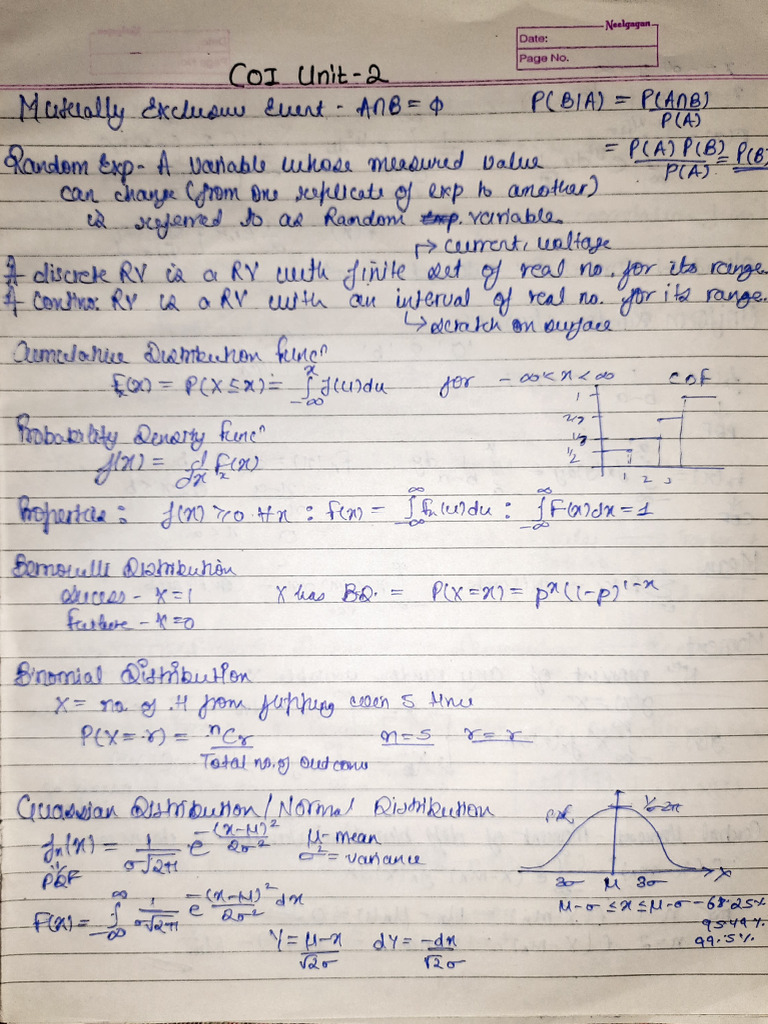 Neelgagan
Date:
Page No.
COI Unit-2
Mutually Exclusive Event - A∩B = ϕ P(B|A) = P(A∩B)/P(A)
= P(A) P(B)/P(A) = P(B)
Random Exp- A variable whose measured value
can change (from one replicate of exp to another)
is referred to as Random variable.
↱ current, voltage
A discrete RV is a RV with finite set of real no. for its range.
A Continu. RV is a RV with an interval of real no. for its range.
↳ scratch on surface
Cumulative Distribution funcⁿ
Fₓ(x) = P(X≤x) = ∫_{-∞}^{x} f(u)du for -∞<x<∞
CDF
1
2/3
1/3
1/2
1 2 3
Probability Density funcⁿ
f(x) = d/dx Fₓ(x)
Properties: f(x) ≥0 ∀x : f(x) = ∫_{-∞}^{∞} fₙ(u)du : ∫_{-∞}^{∞} F(x)dx = 1
Bernoulli Distribution
success - X=1 X has BD. = P(X=x) = pˣ(1-p)^{1-x}
failure - X=0
Binomial Distribution
X = no. of H from flipping coin 5 time
P(X=r) = ⁿCr/Total no. of outcome n=5 r=r
Gaussian Distribution/Normal Distribution
fₙ(x) = 1/σ√2π e^{-(x-μ)²/2σ²} μ- mean
σ² = variance
PDF
F(x) = ∫_{-∞}^{∞} 1/σ√2π e^{-(x-μ)²/2σ²} dx
Y = μ-x/√2σ dY = -dx/√2σ
3σ μ 3σ x
μ-σ ≤x≤ μ-σ - 68.25%
95.49%
99.5%